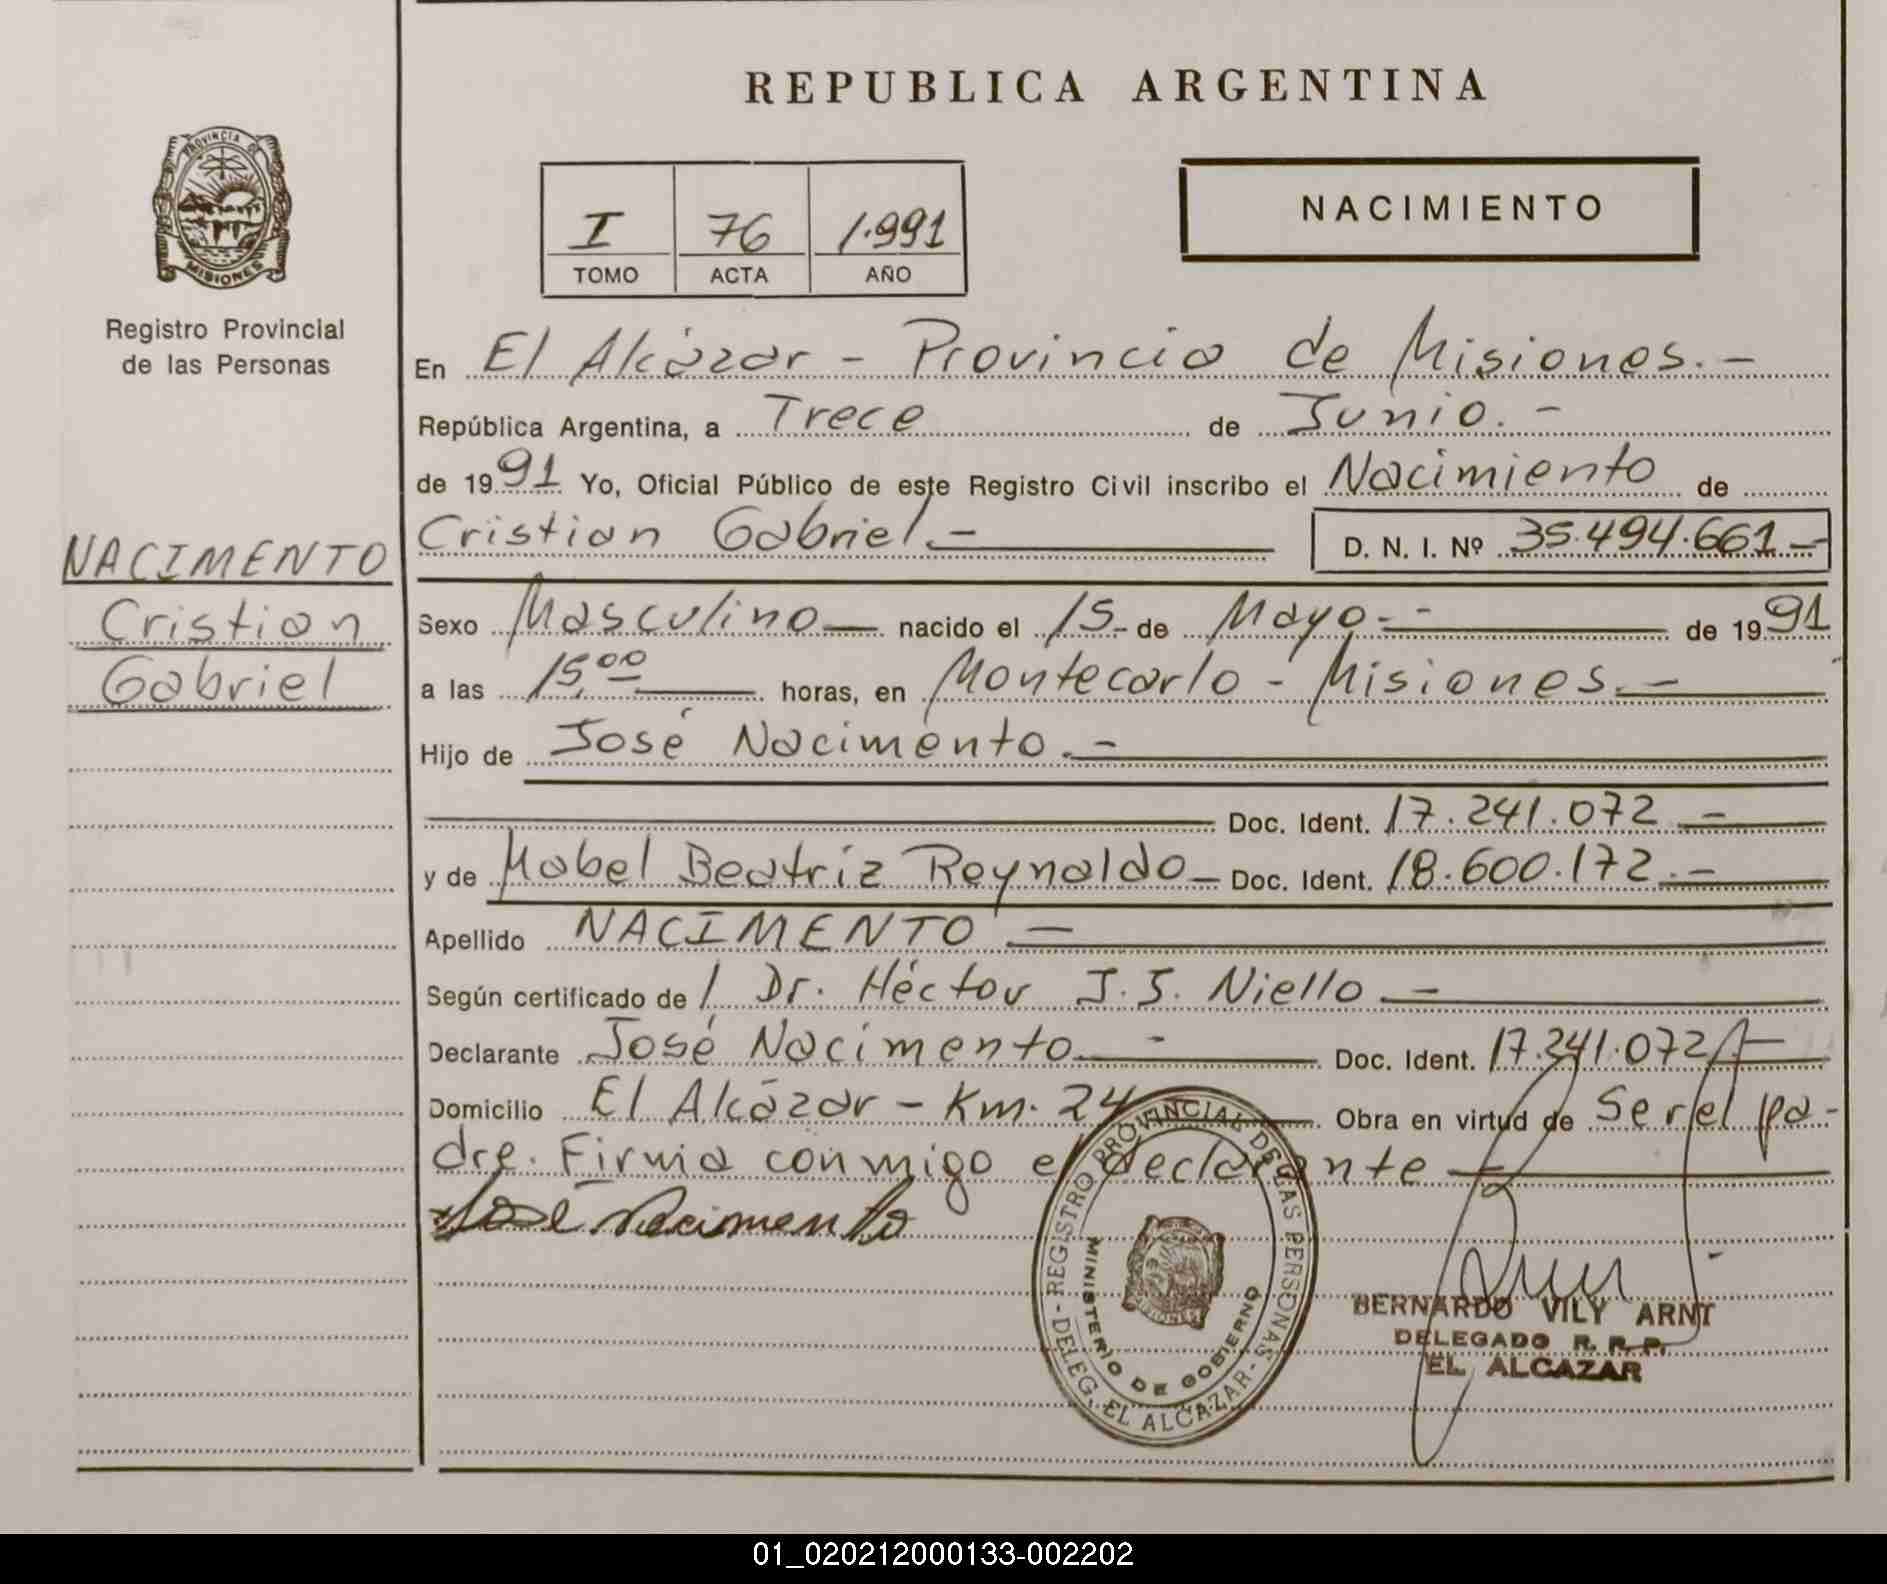 REPUBLICA ARGENTINA
PROVINCIA DE
MISIONES
Registro Provincial
de las Personas
I 76 1.991
TOMO ACTA AÑO
NACIMIENTO
En El Alcázar - Provincia de Misiones.-
República Argentina, a Trece de Junio.-
de 1991 Yo, Oficial Público de este Registro Civil inscribo el Nacimiento de
Cristian Gabriel.- D. N. I. Nº 35.494.661.-
NACIMENTO
Cristian
Gabriel
Sexo Masculino nacido el 15- de Mayo.- de 1991
a las 15,00 horas, en Montecarlo - Misiones.-
Hijo de José Nacimento.-
Doc. Ident. 17.241.072.-
y de Mabel Beatriz Reynaldo- Doc. Ident. 18.600.172.-
Apellido NACIMENTO -
Según certificado de / Dr. Héctor J.J. Niello -
Declarante José Nacimento - Doc. Ident. 17.241.072
Domicilio El Alcázar - Km. 24 Obra en virtud de Ser el pa-
dre. Firma conmigo el declarante -
José Nacimento
REGISTRO PROVINCIAL DE LAS PERSONAS - DELEG. EL ALCAZAR -
MINISTERIO DE GOBIERNO
BERNARDO VILY ARNT
DELEGADO R. R. P.
EL ALCAZAR
01_020212000133-002202